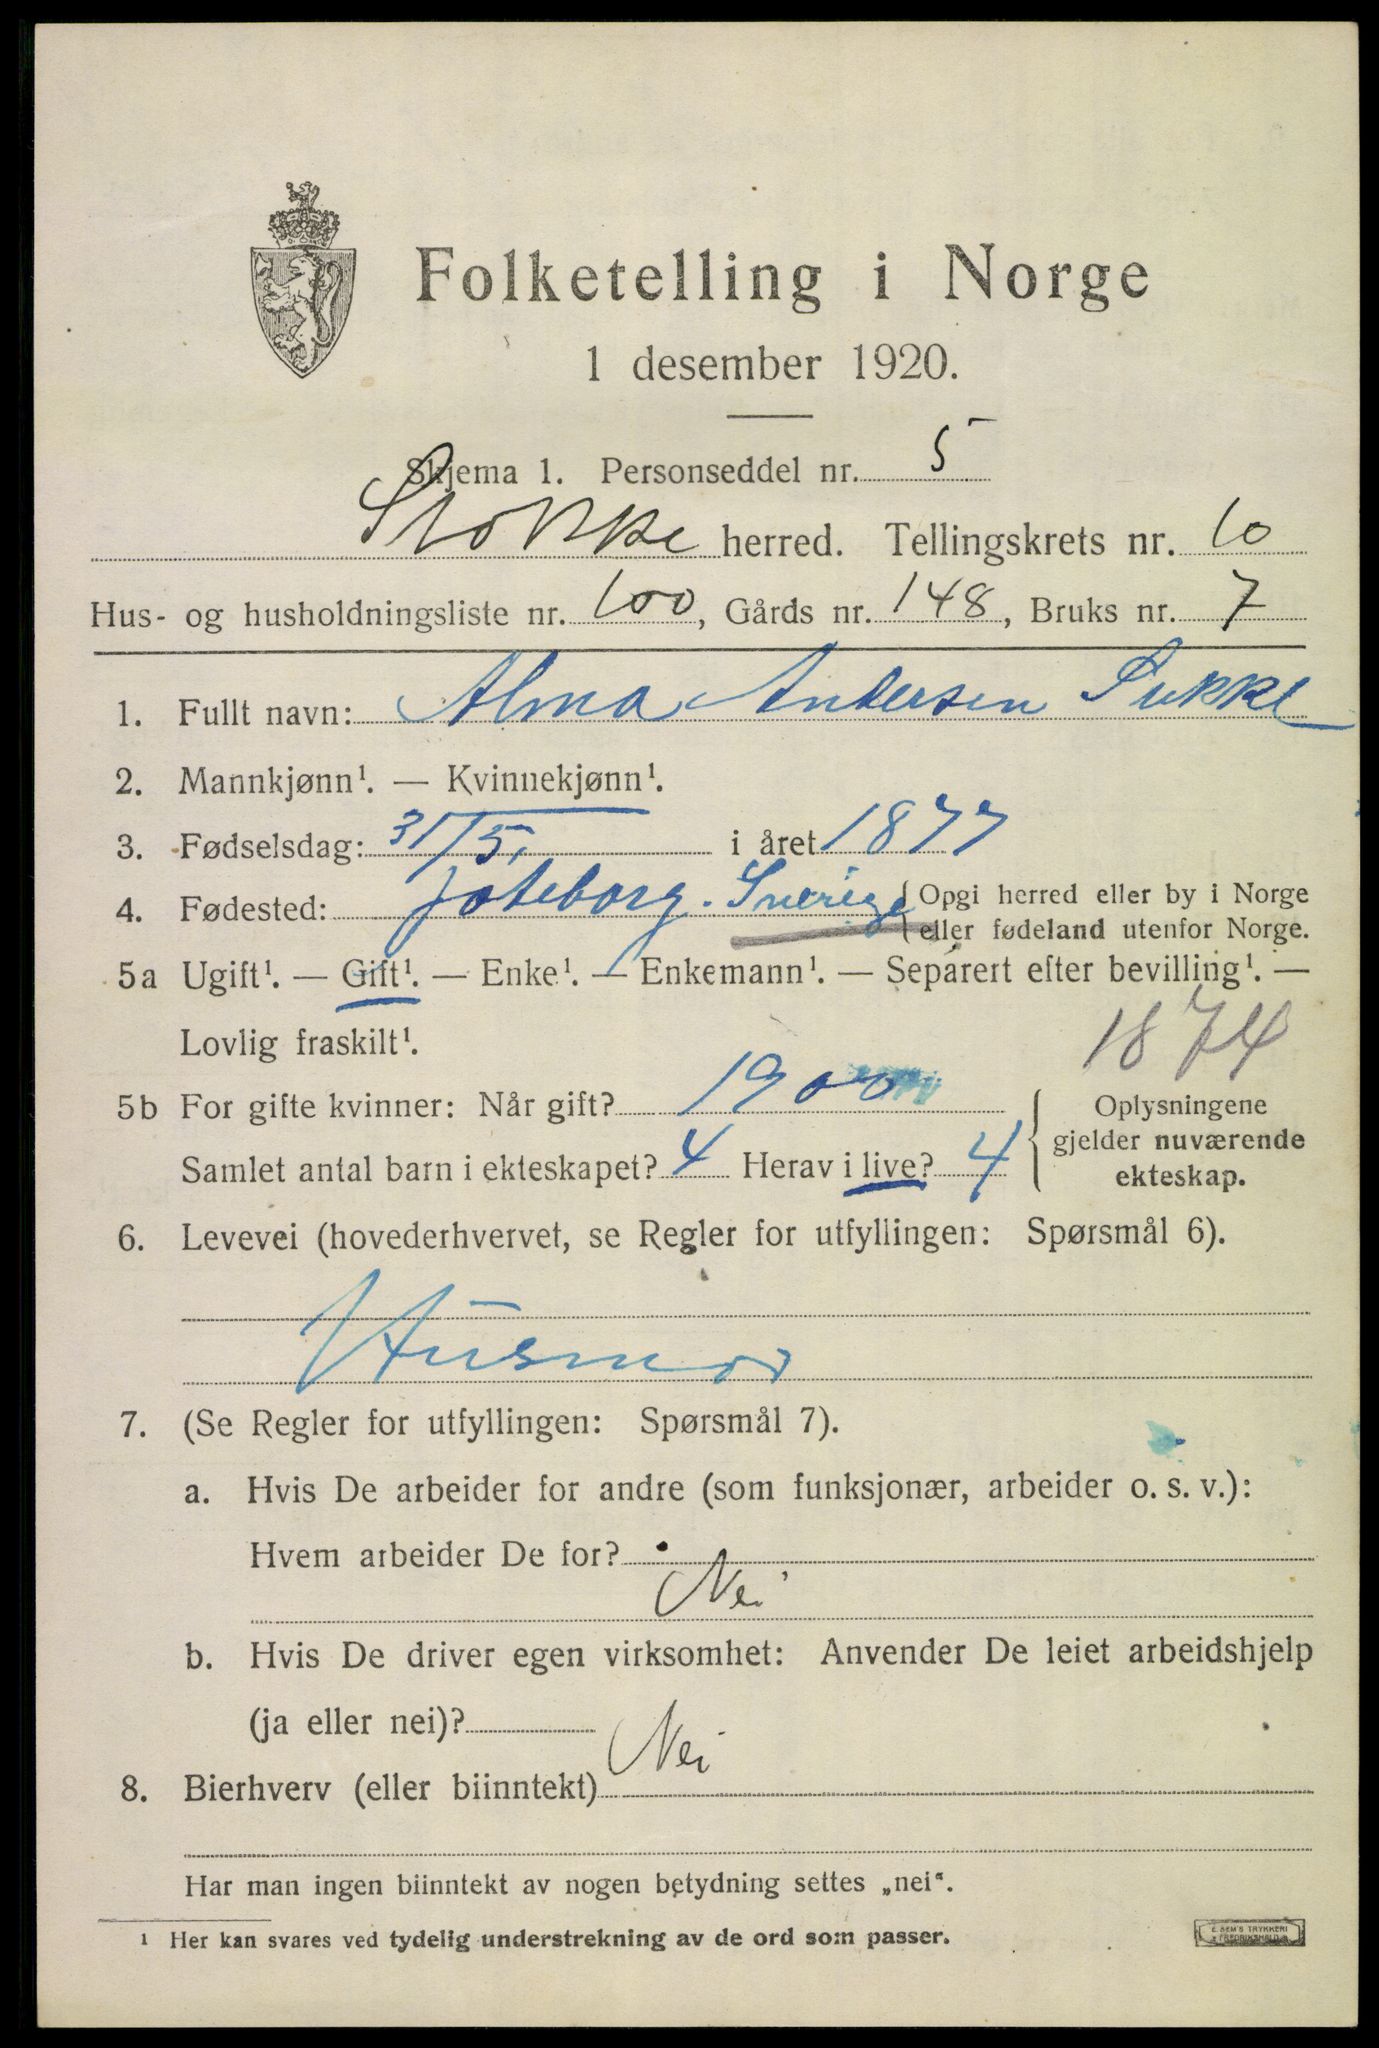 Folketelling i Norge
1 desember 1920.
Skjema 1. Personseddel nr. 5
Stokke herred. Tellingskrets nr. 10
Hus- og husholdningsliste nr. 100, Gårds nr. 148, Bruks nr. 7
1. Fullt navn: Alma Andersen Sukke
2. Mannkjønn¹. — Kvinnekjønn¹.
3. Fødselsdag: 31/5, i året 1877
4. Fødested: Joteborg. Sverige { Opgi herred eller by i Norge
eller fødeland utenfor Norge.
5a Ugift¹. — Gift¹. — Enke¹. — Enkemann¹. — Separert efter bevilling¹. —
Lovlig fraskilt¹.
1874
5b For gifte kvinner: Når gift? 1900
Samlet antal barn i ekteskapet? 4 Herav i live? 4
Oplysningene
gjelder nuværende
ekteskap.
6. Levevei (hovederhvervet, se Regler for utfyllingen: Spørsmål 6).
Husmor
7. (Se Regler for utfyllingen: Spørsmål 7).
a. Hvis De arbeider for andre (som funksjonær, arbeider o. s. v.):
Hvem arbeider De for?
Nei
b. Hvis De driver egen virksomhet: Anvender De leiet arbeidshjelp
(ja eller nei)?
Nei
8. Bierhverv (eller biinntekt)
Har man ingen biinntekt av nogen betydning settes „nei“.
¹ Her kan svares ved tydelig understrekning av de ord som passer.
E. SEM'S TRYKKERI
FREDRIKSHALD